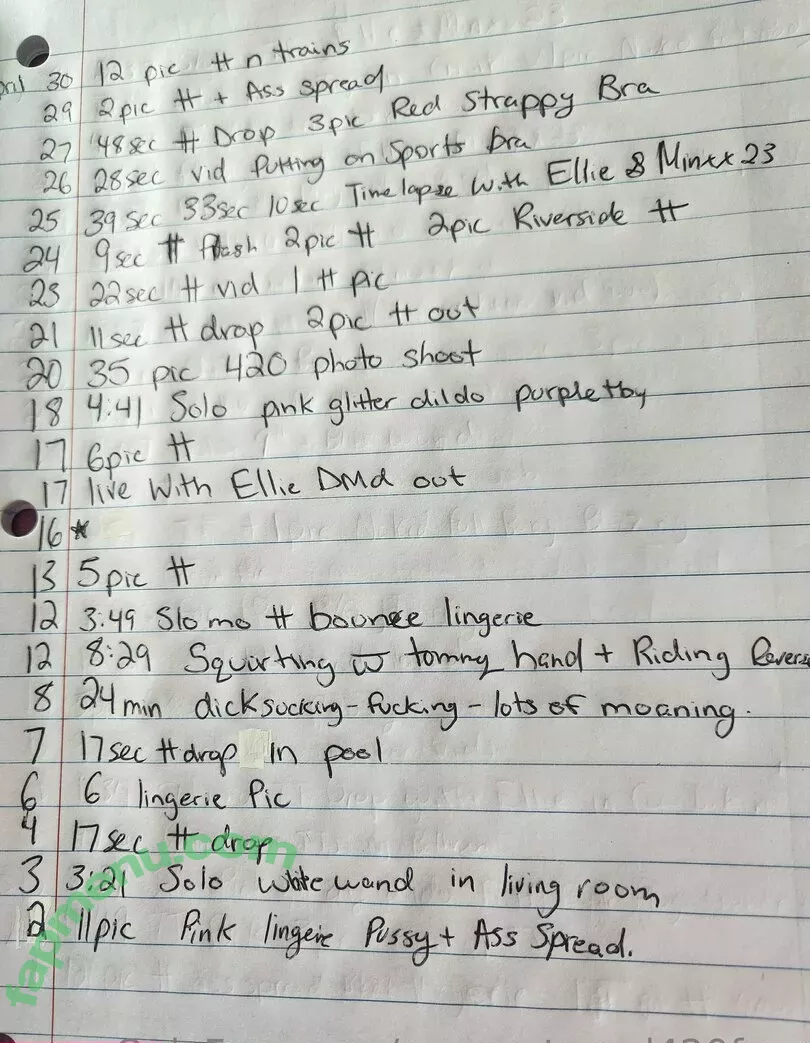 30 12 pic tt n trains
29 2pic tt + Ass spread
27 48sec tt Drop 3pic Red Strappy Bra
26 28sec vid Putting on Sports bra
25 39 sec 33sec 10sec Timelapse With Ellie & Minxx 23
24 9sec tt flash 2pic tt 2pic Riverside tt
23 22sec tt vid 1 tt pic
21 11sec tt drop 2pic tt out
20 35 pic 420 photo shoot
18 4:41 Solo pink glitter dildo purple toy
17 6pic tt
17 live With Ellie DMd out
16 *
13 5pic tt
12 3:49 Slo mo tt bounce lingerie
12 8:29 Squirting w tommy hand + Riding Revers
8 24min dicksucking - fucking - lots of moaning.
7 17sec tt drop in pool
6 6 lingerie Pic
4 17sec tt drop
3 3:21 Solo white wand in living room
2 11pic Pink lingerie Pussy + Ass Spread.
fapmanu.com